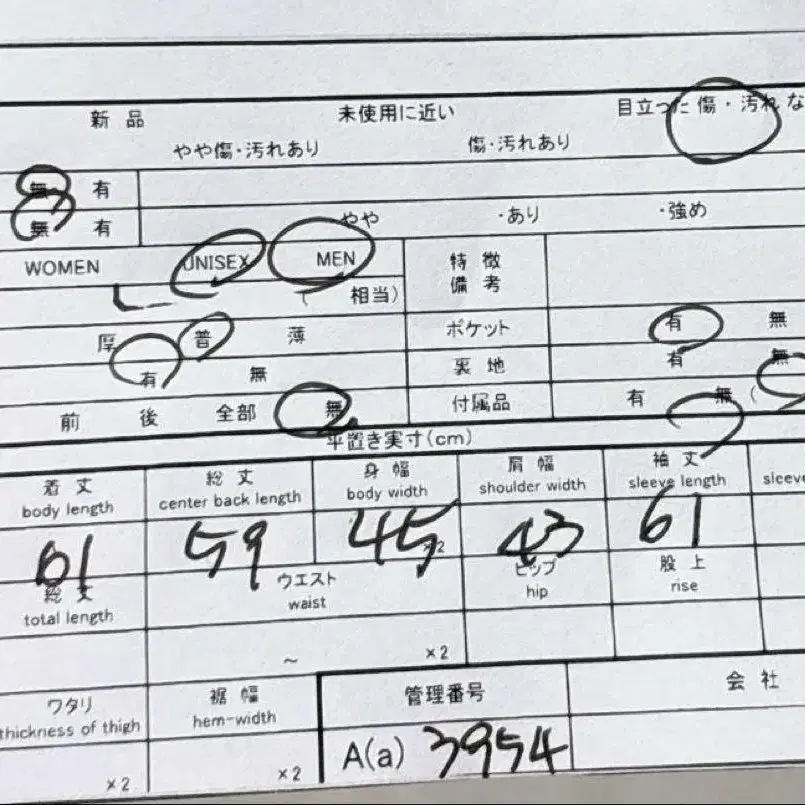 新品 未使用に近い 目立った傷・汚れな
やや傷・汚れあり 傷・汚れあり
無 有
無 有 やや ・あり ・強め
WOMEN UNISEX MEN 特徴
備考
L ( 相当)
厚 普 薄 ポケット 有 無
有 無 裏地 有 無
前 後 全部 無 付属品 有 無 (
平置き実寸(cm)
着丈 総丈 身幅 肩幅 袖丈
body length center back length body width shoulder width sleeve length sleeve
61 59 45 ×2 43 61
総丈 ウエスト ヒップ 股上
total length waist hip rise
~ ×2
ワタリ 裾幅 管理番号 会社
thickness of thigh hem-width
×2 ×2 A(a) 3954